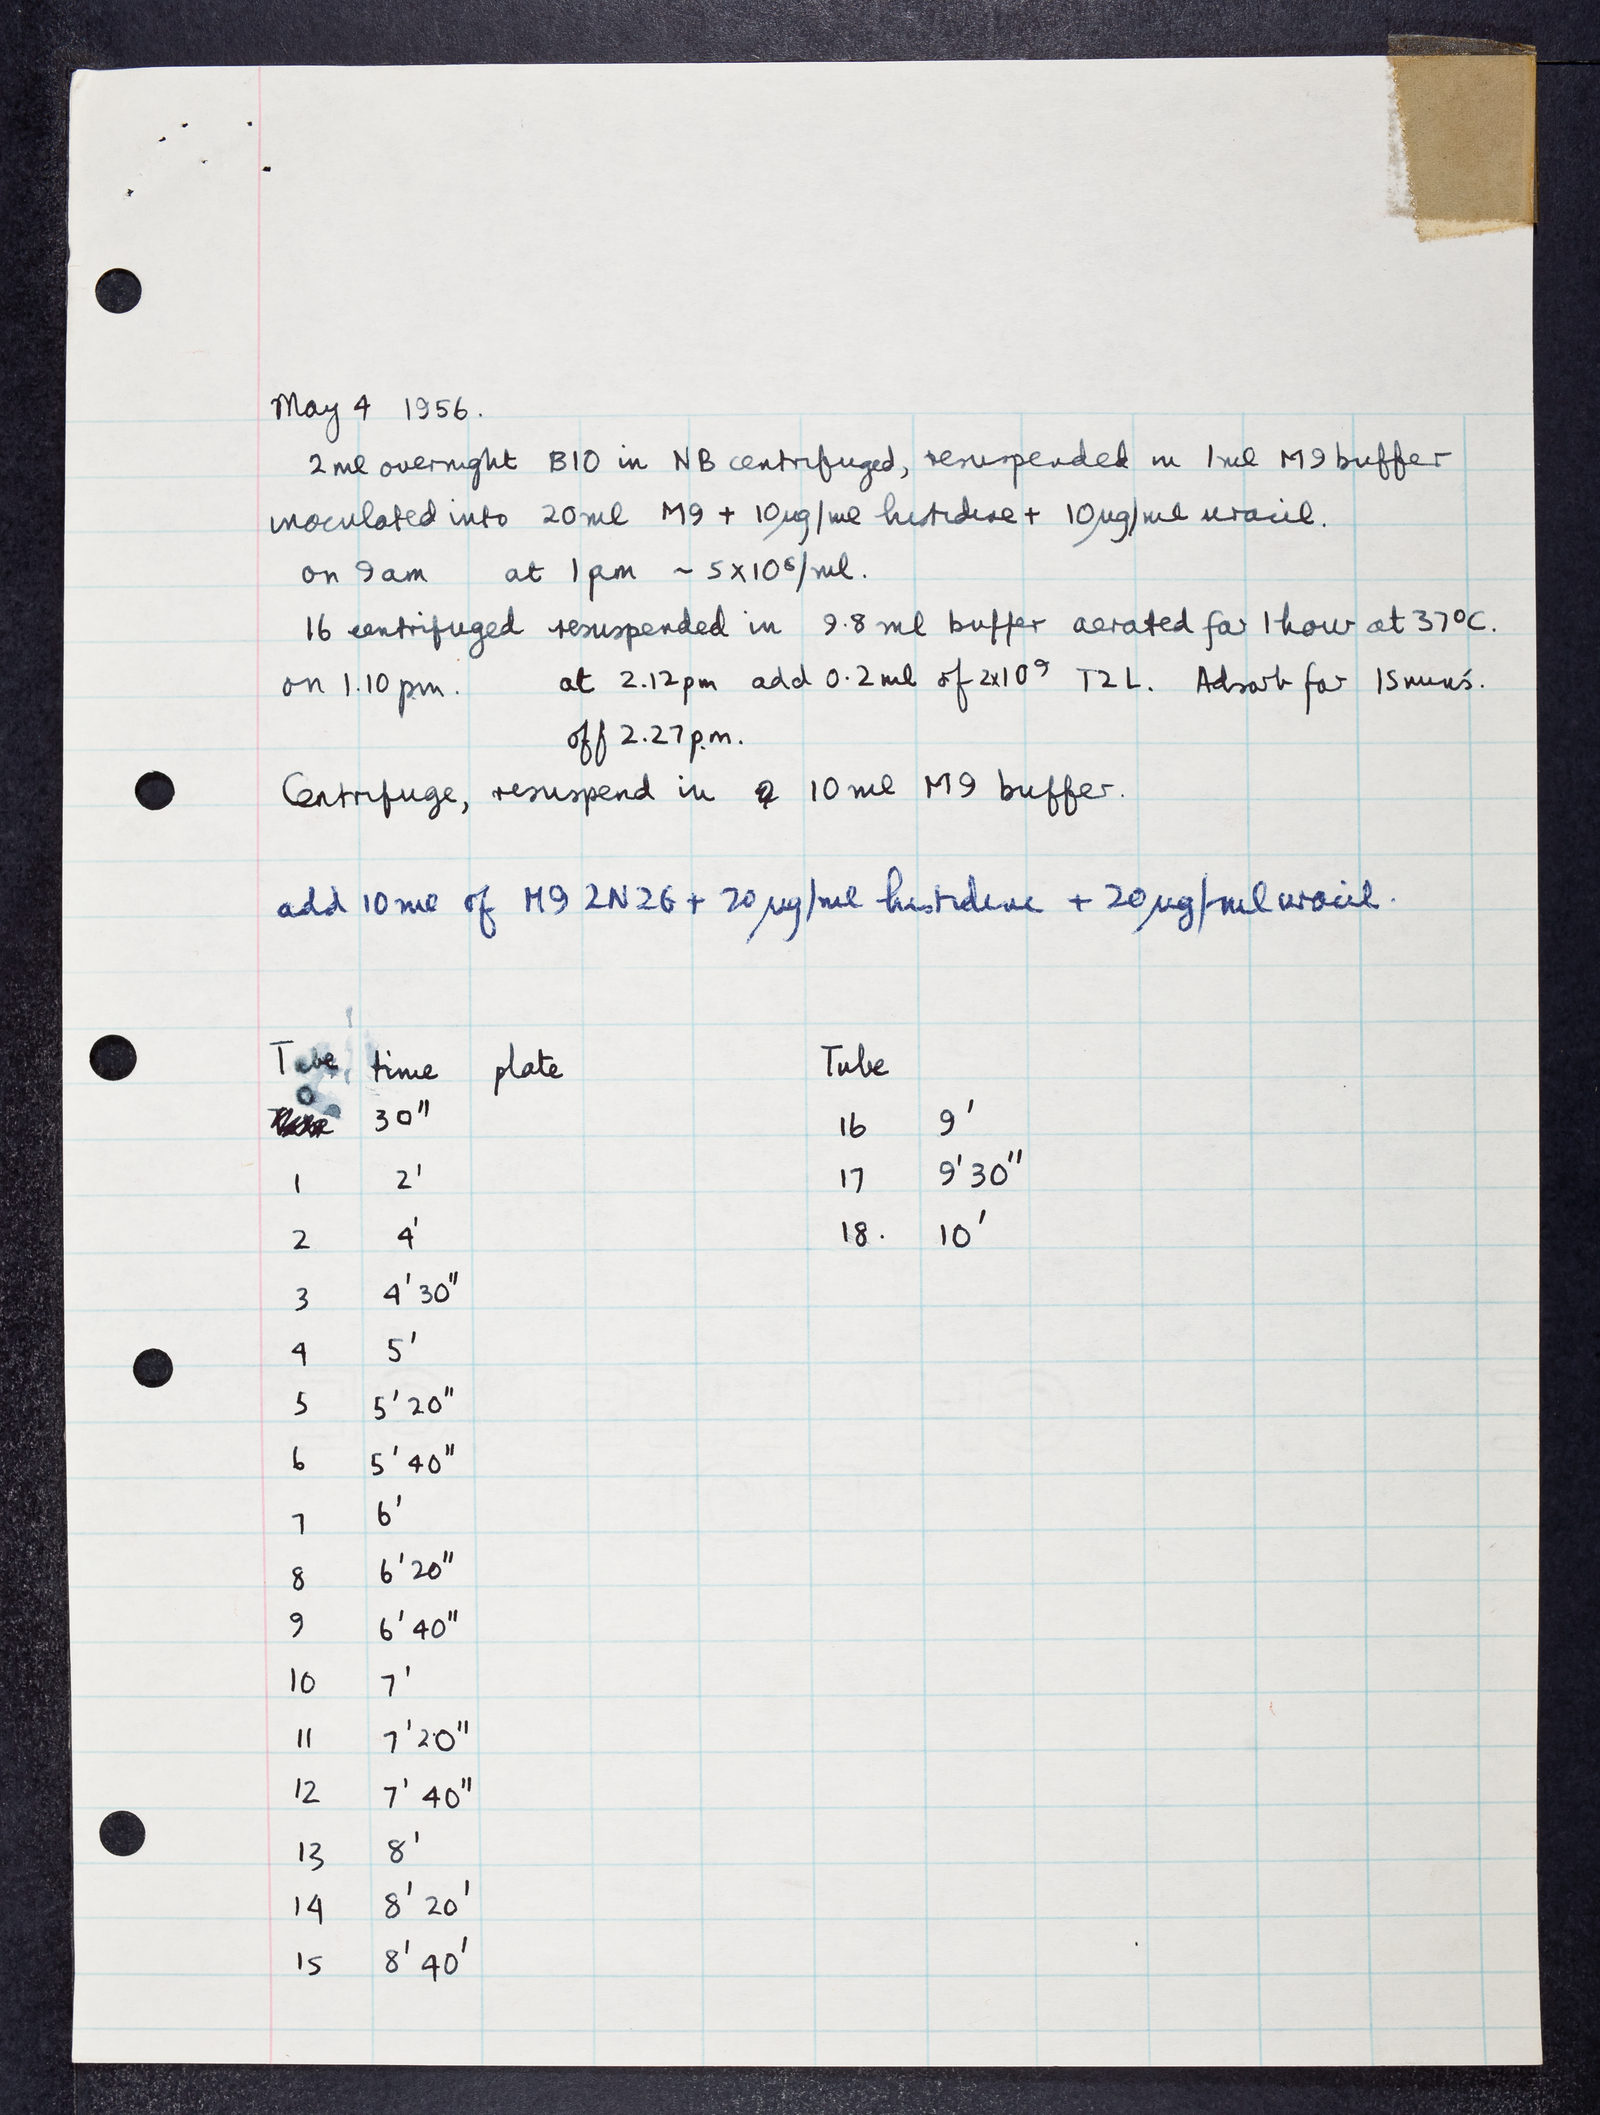 May 4 1956.
2ml overnight B10 in NB centrifuged, resuspended in 1ml M9 buffer
inoculated into 20ml M9 + 10µg/ml histidine + 10µg/ml uracil.
on 9am at 1pm ~ 5x10⁶/ml.
16 centrifuged resuspended in 9.8 ml buffer aerated for 1 hour at 37°C.
on 1.10 pm. at 2.12pm add 0.2ml of 2x10⁹ T2L. Adsorb for 15 mins.
off 2.27p.m.
Centrifuge, resuspend in 10ml M9 buffer.
add 10ml of M9 2N2G + 20µg/ml histidine + 20µg/ml uracil.
Tube time plate
0 30"
1 2'
2 4'
3 4'30"
4 5'
5 5'20"
6 5'40"
7 6'
8 6'20"
9 6'40"
10 7'
11 7'20"
12 7'40"
13 8'
14 8'20'
15 8'40'
Tube
16 9'
17 9'30"
18. 10'